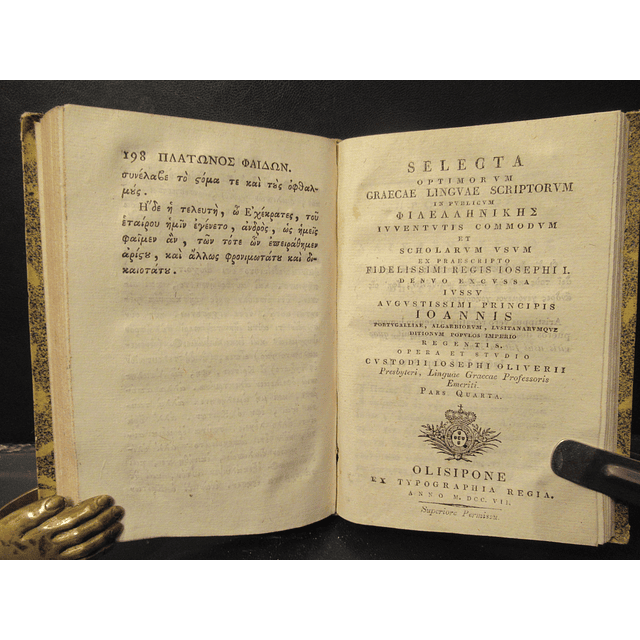 198 ΠΛΑΤΩΝΟΣ ΦΑΙΔΩΝ.
συνέλαβε τὸ ϛόμα τε καὶ τὺς ὀφθαλ-
μύς.
Ἥδε ἡ τελευτὴ, ὦ Ἐχέκρατες, τοῦ
ἑταίρου ἡμῖν ἐγένετο, ἀνδρὸς, ὡς ἡμεῖς
φαῖμεν ἂν, των τότε ὧν ἐπειράθημεν
ἀρίϛυ, καὶ ἄλλως φρονιμωτάτυ καὶ δι-
καιοτάτυ.
SELECTA
OPTIMORVM
GRAECAE LINGVAE SCRIPTORVM
IN PVBLICVM
ΦΙΛΕΛΛΗΝΙΚΗΣ
IVVENTVTIS COMMODVM
ET
SCHOLARVM VSVM
EX PRAESCRIPTO
FIDELISSIMI REGIS IOSEPHI I.
DENVO EXCVSSA
IVSSV
AVGVSTISSIMI PRINCIPIS
IOANNIS
PORTVGALLIAE, ALGARBIORVM, LVSITANARVMQVE
DITIONVM POPVLOS IMPERIO
REGENTIS.
OPERA ET STVDIO
CVSTODII IOSEPHI OLIVERII
Presbyteri, Linguae Graecae Professoris
Emeriti.
PARS QUARTA.
OLISIPONE
EX TYPOGRAPHIA REGIA.
ANNO M. DCC. VII.
Superiore Permissu.